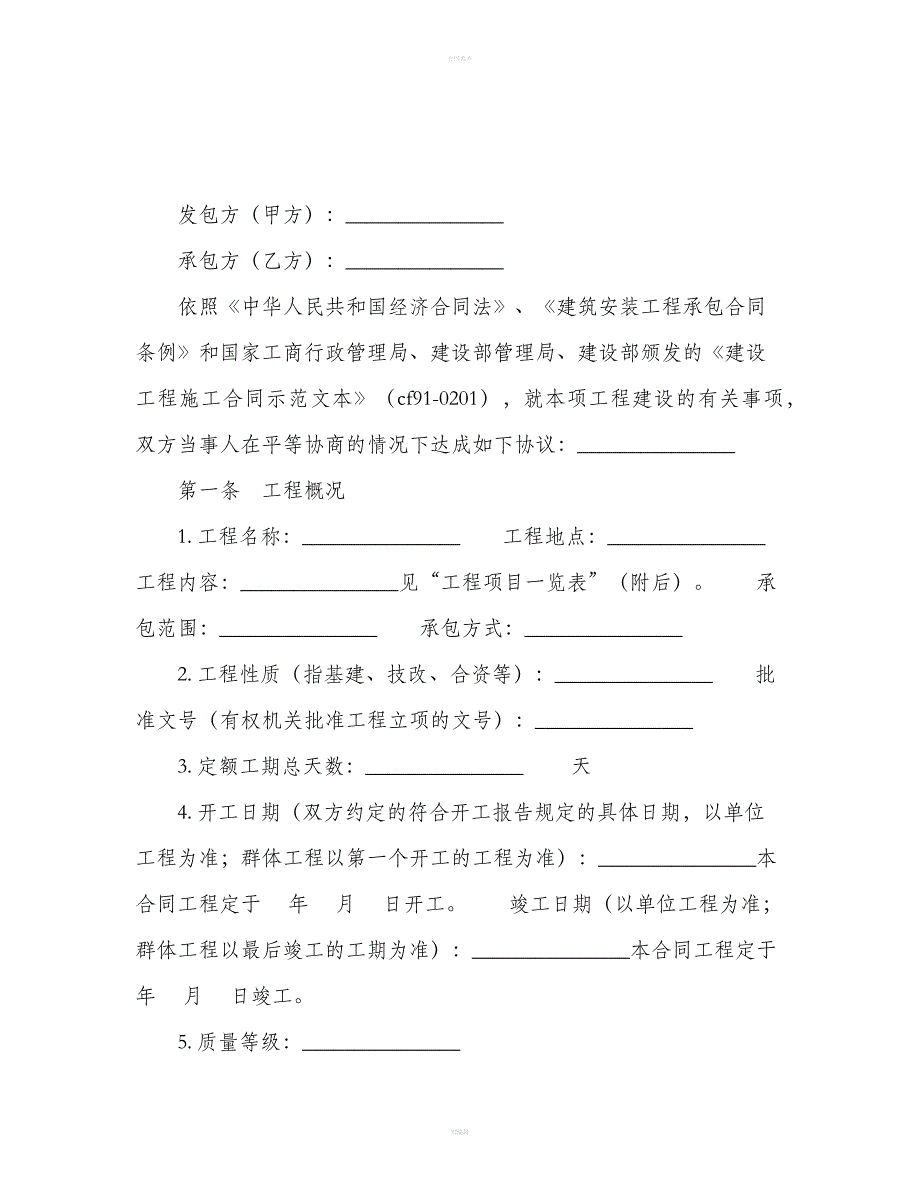 发包方（甲方）：_______________
承包方（乙方）：_______________
依照《中华人民共和国经济合同法》、《建筑安装工程承包合同
条例》和国家工商行政管理局、建设部管理局、建设部颁发的《建设
工程施工合同示范文本》（cf91-0201），就本项工程建设的有关事项，
双方当事人在平等协商的情况下达成如下协议：_______________
第一条　工程概况
1. 工程名称：_______________　　工程地点：_______________
工程内容：_______________见“工程项目一览表”（附后）。　　承
包范围：_______________　　承包方式：_______________
2. 工程性质（指基建、技改、合资等）：_______________　　批
准文号（有权机关批准工程立项的文号）：_______________
3. 定额工期总天数：_______________　　天
4. 开工日期（双方约定的符合开工报告规定的具体日期，以单位
工程为准；群体工程以第一个开工的工程为准）：_______________本
合同工程定于　年　月　日开工。　　竣工日期（以单位工程为准；
群体工程以最后竣工的工期为准）：_______________本合同工程定于
年　月　日竣工。
5. 质量等级：_______________